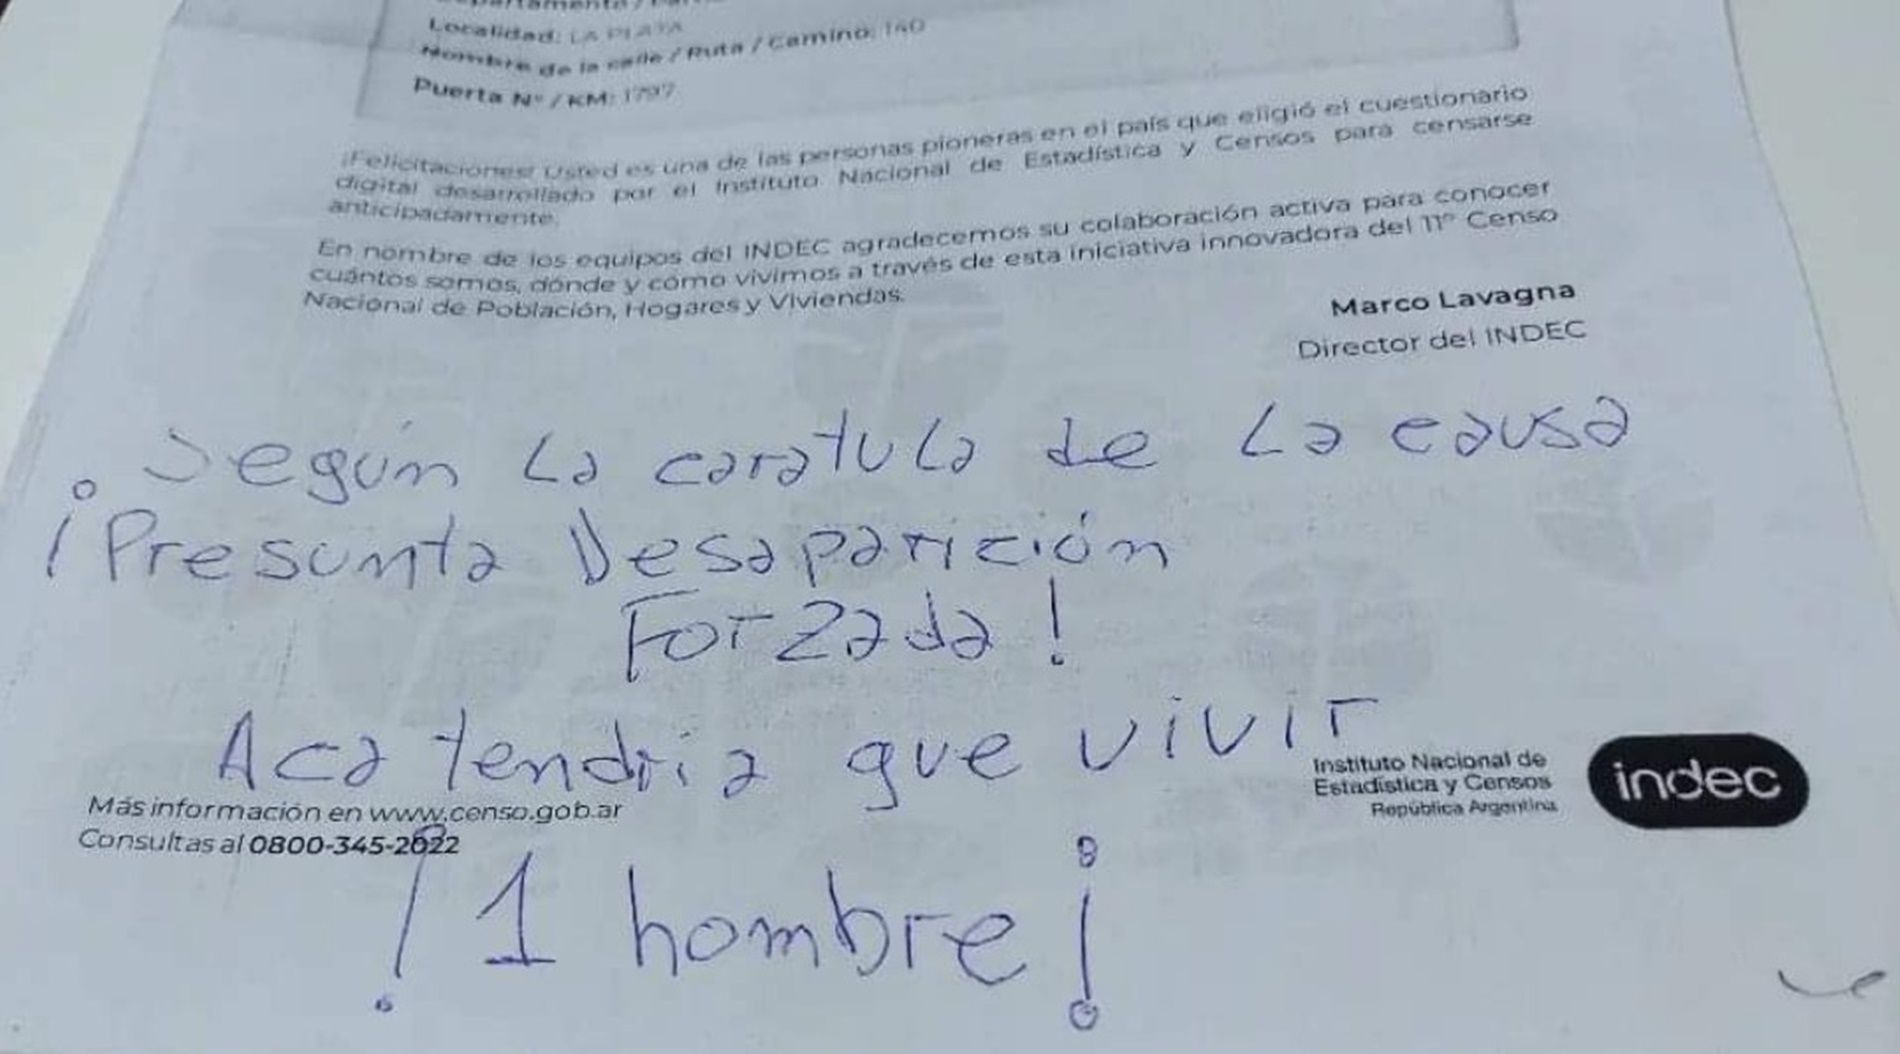 Localidad: LA PLATA
Nombre de la calle / Ruta / Camino: 140
Puerta N° / KM: 1797
¡Felicitaciones! Usted es una de las personas pioneras en el país que eligió el cuestionario
digital desarrollado por el Instituto Nacional de Estadística y Censos para censarse
anticipadamente.
En nombre de los equipos del INDEC agradecemos su colaboración activa para conocer
cuántos somos, dónde y cómo vivimos a través de esta iniciativa innovadora del 11° Censo
Nacional de Población, Hogares y Viviendas.
Marco Lavagna
Director del INDEC
Según La caratula de La causa
¡Presunta Desaparición
Forzada!
Aca tendria que vivir
Instituto Nacional de
Estadística y Censos
República Argentina
indec
Más información en www.censo.gob.ar
Consultas al 0800-345-2022
¡1 hombre!